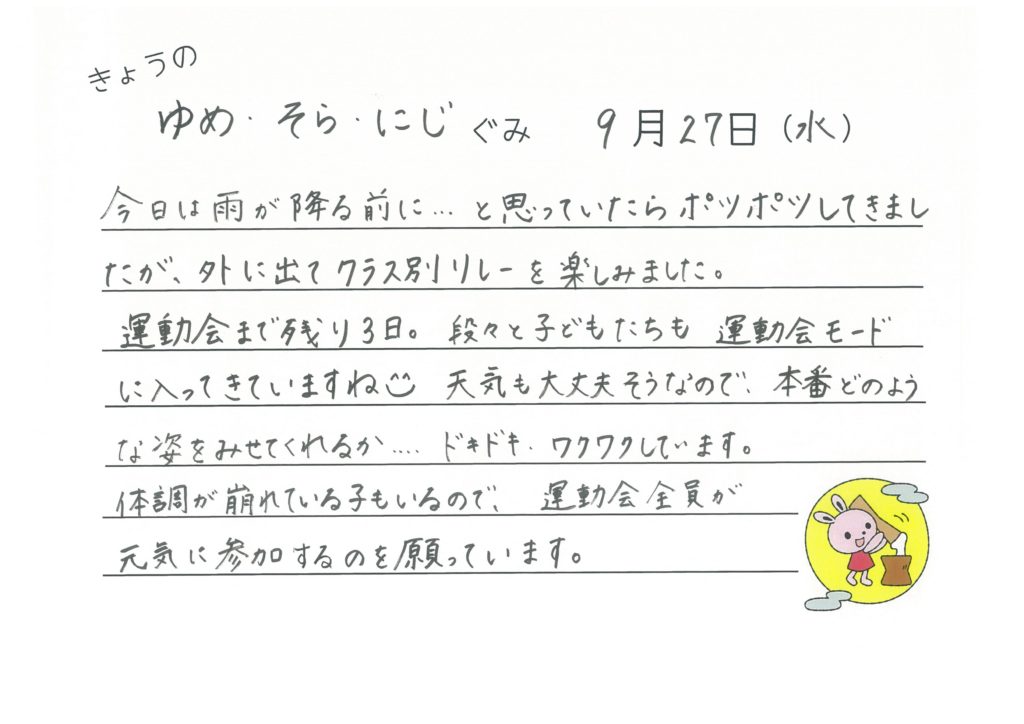 きょうの
ゆめ・そら・にじ ぐみ 9月27日(水)
今日は雨が降る前に…と思っていたらポツポツしてきまし
たが、外に出てクラス別リレーを楽しみました。
運動会まで残り3日。段々と子どもたちも運動会モード
に入ってきていますね☺ 天気も大丈夫そうなので、本番どのよう
な姿をみせてくれるか….ドキドキ・ワクワクしています。
体調が崩れている子もいるので、運動会全員が
元気に参加するのを願っています。